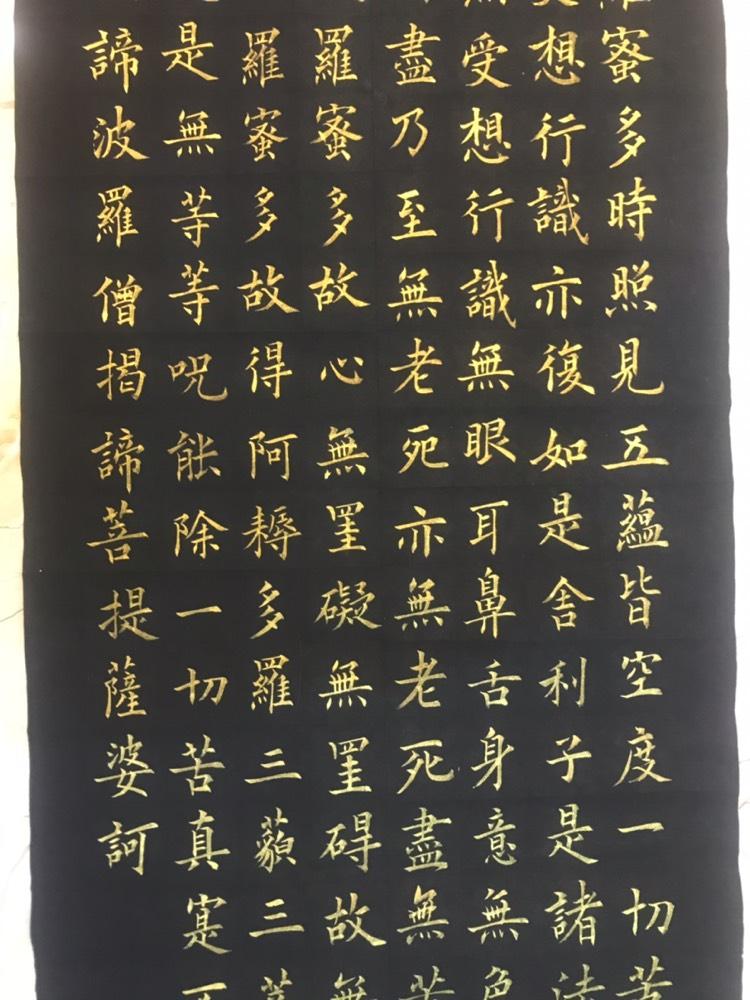 羅蜜多時照見五蘊皆空度一切苦
想行識亦復如是舍利子是諸法
受想行識無眼耳鼻舌身意無色
盡乃至無老死亦無老死盡無苦
羅蜜多故心無罣礙無罣碍故無
羅蜜多故得阿耨多羅三藐三菩
是無等等呪能除一切苦真寔不
諦波羅僧揭諦菩提薩婆訶